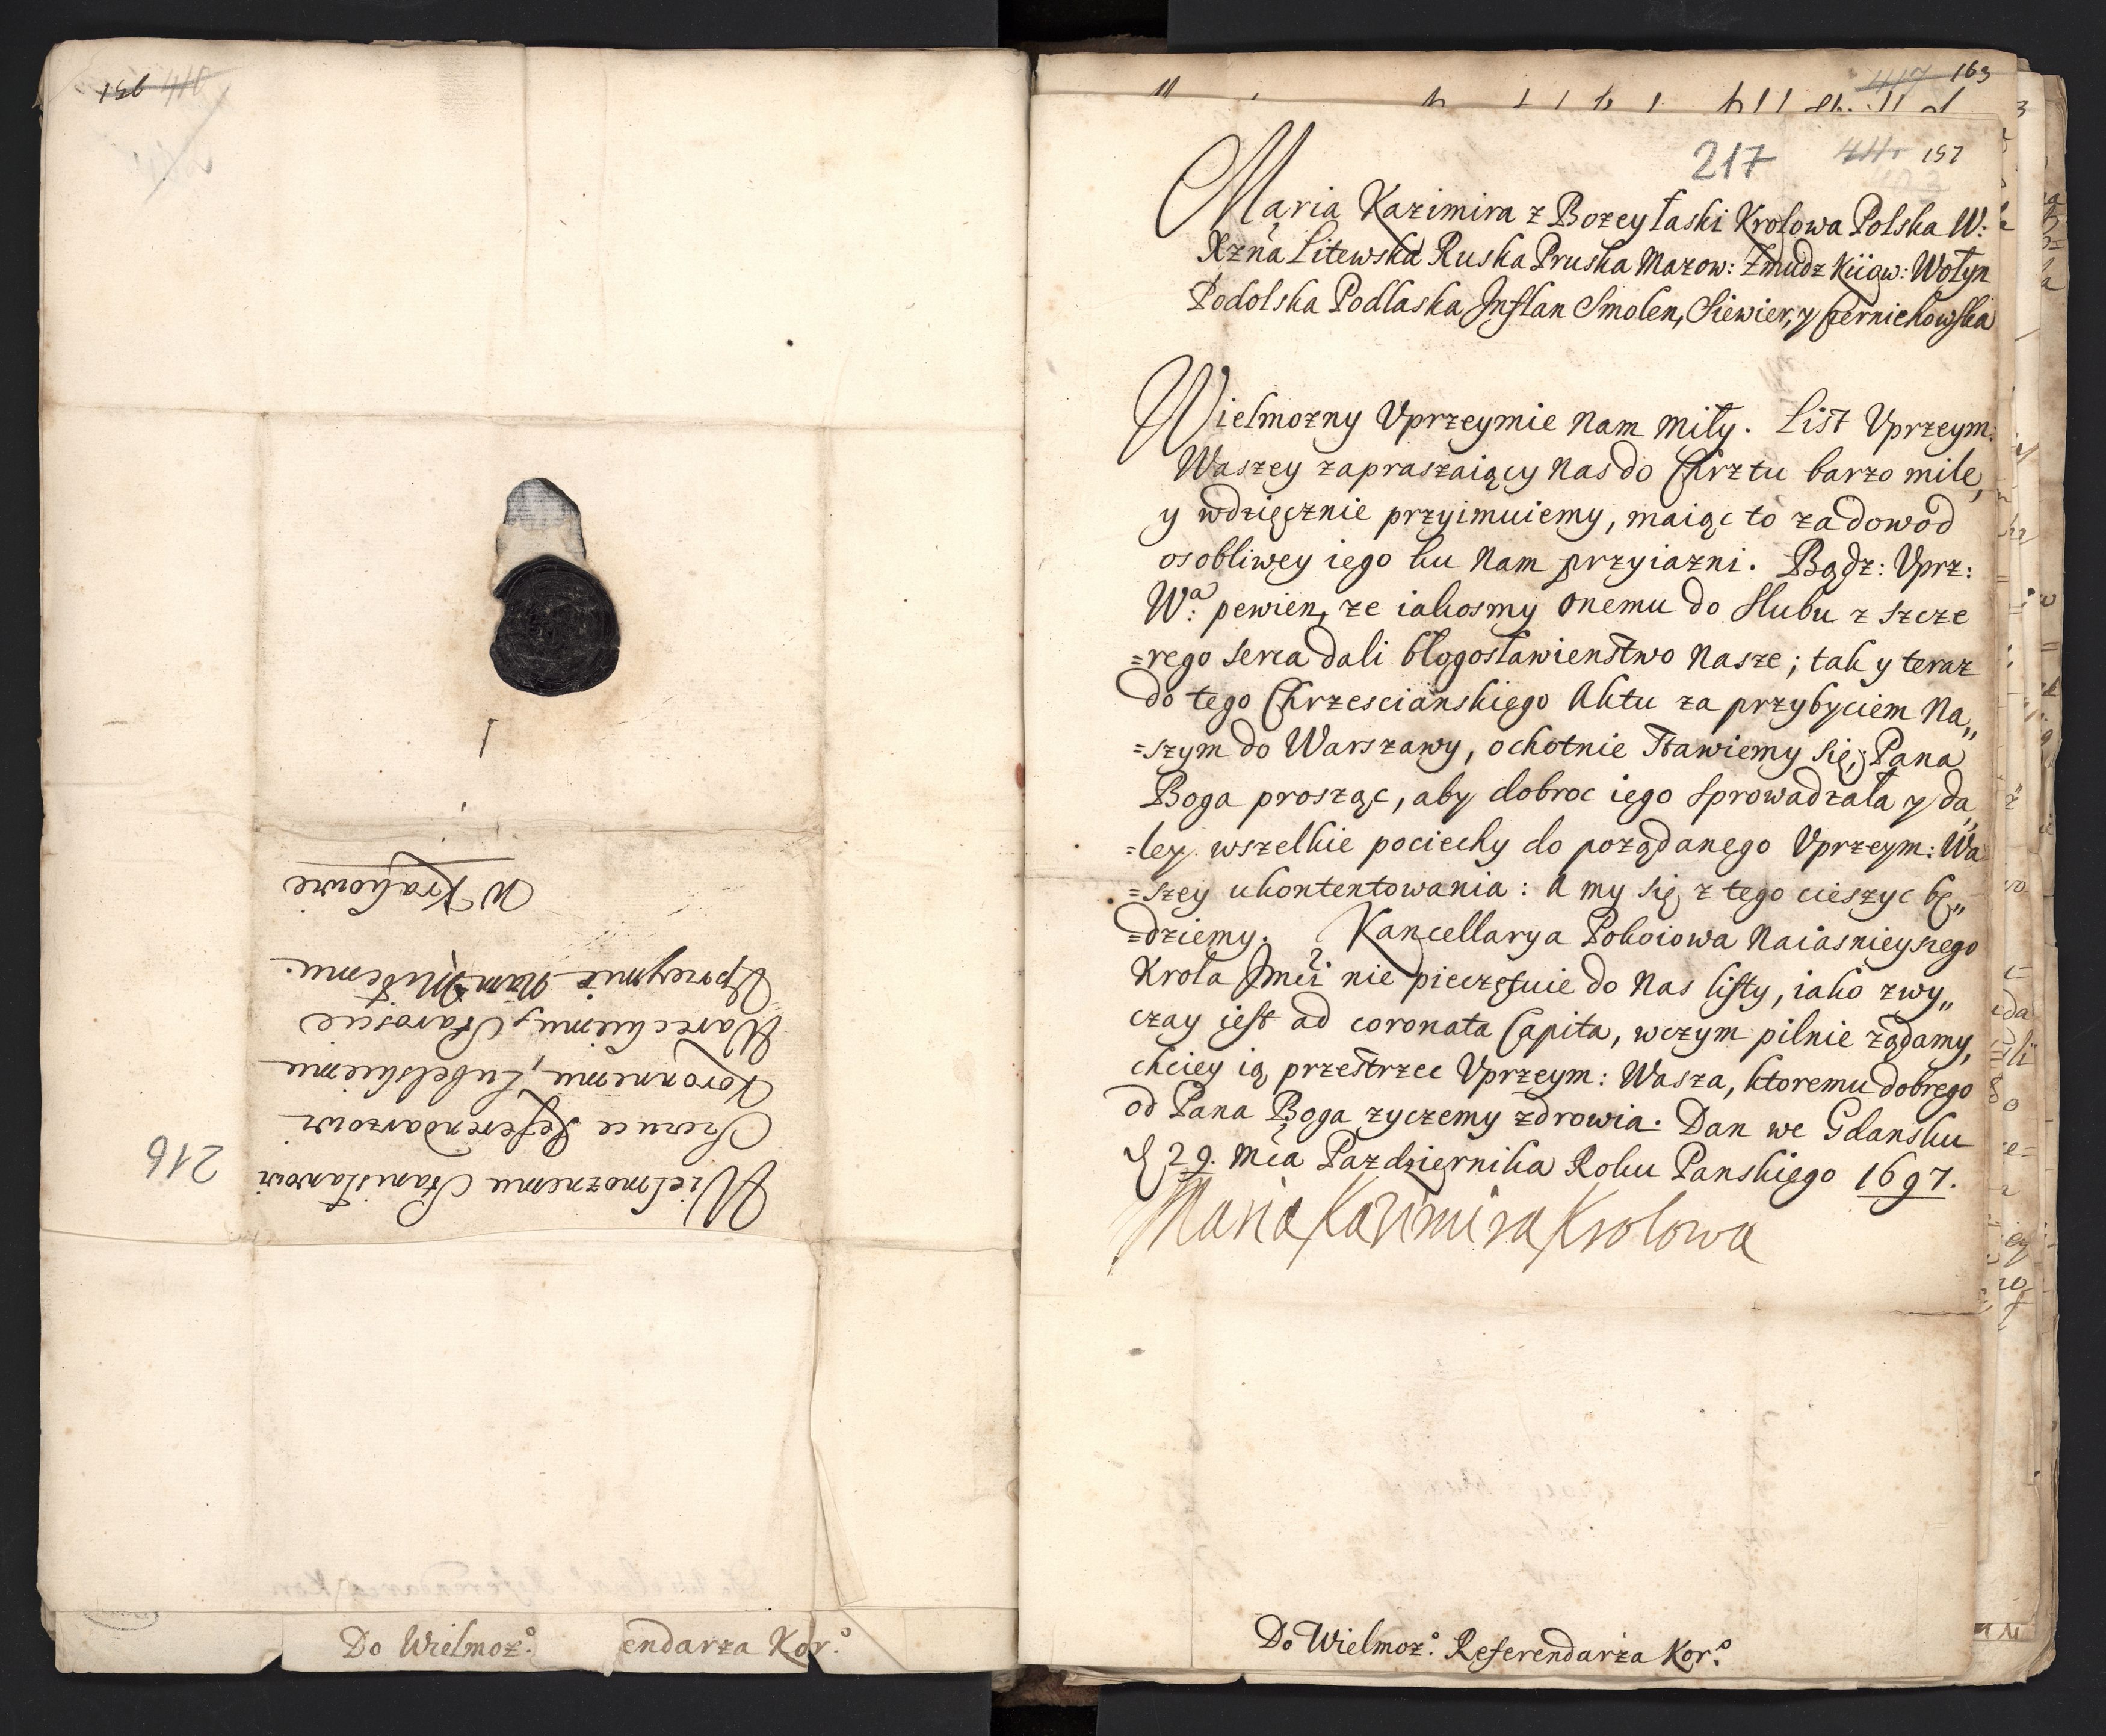 156 410
W Krakowie
Wielmoznemu Stanisławowi
Szczuce Referendarzowi
Koronnemu, Lubelskiemu
Wareckiemu, Staroscie
Uprzeymie Nam Miłemu.
216
Do Wielmoz.º endarza Kor.º
417 163
217 411 157
Maria Kazimira z Bozey łaski Krolowa Polska W:
Xzna Litewska Ruska Pruska Mazow: Zmudz Kiiow: Wołyn
Podolska Podlaska Inflan Smolen, Siewier, y Czernichowska
Wielmozny Vprzeymie Nam miły. List Vprzeym:
Waszey zapraszaiący Nas do Chrztu barzo mile,
y wdzięcznie przyimuiemy, maiąc to za dowod
osobliwey iego ku Nam przyiazni. Bądz: Vprz:
W:ª pewien, ze iakosmy Onemu do slubu z szcze
=rego serca dali błogosławienstwo Nasze; tak y teraz
do tego Chrzescianskiego Aktu za przybyciem Na„
=szym do Warszawy, ochotnie stawiemy się, Pana
Boga prosząc, aby dobroc iego sprowadzała y da„
=ley wszelkie pociechy do poządanego Vprzeym: Wa
=szey ukontentowania: A my się z tego cieszyc bę„
=dziemy. Kancellarya Pokoiowa Naiasnieyszego
Krola Jmci nie pieczętuie do Nas listy, iako zwy„
czay iest ad coronata Capita, wczym pilnie ządamy,
chciey ią przestrzec Vprzeym: Wasza, ktoremu dobrego
od Pana Boga zyczemy zdrowia. Dan we Gdansku
d 29. Mca Pazdziernika Roku Panskiego 1697.
Maria Kazimira Krolowa
Do Wielmoz.º Referendarza Kor.º